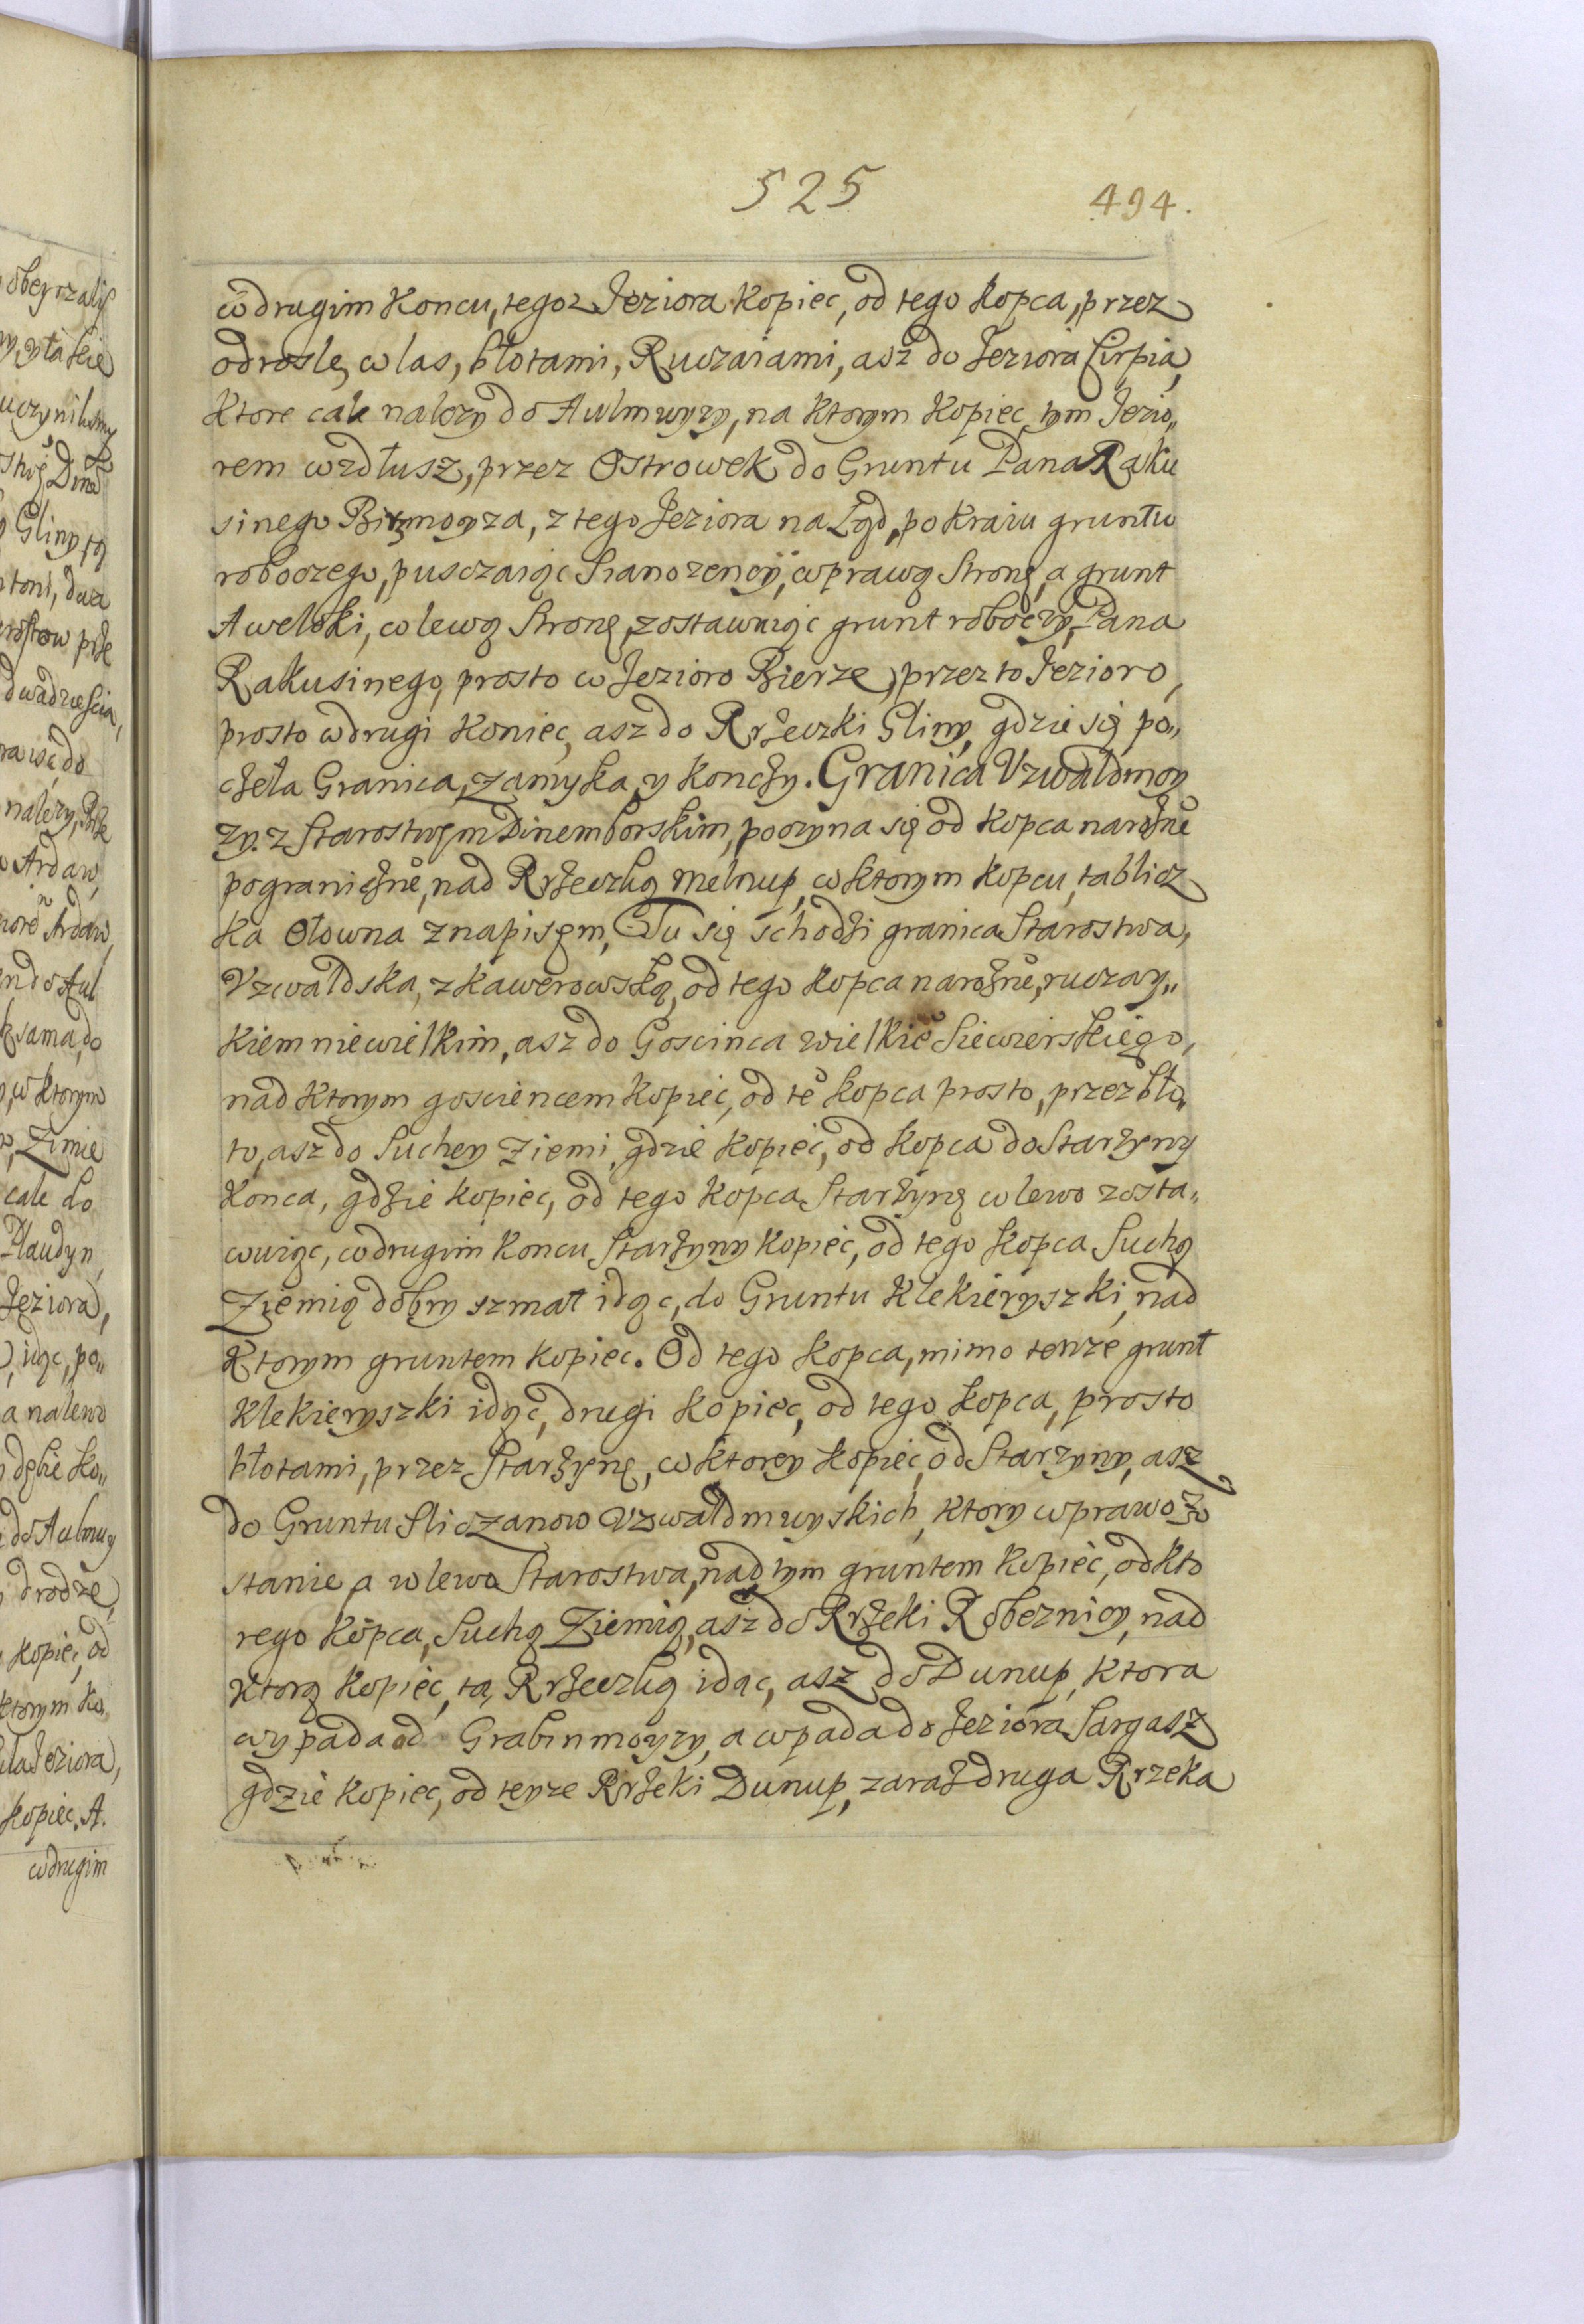 525
494.
w drugim Koncu, tegoz Jeziora Kopiec, od tego kopca, przez
odrosle, w las, błotami, Ruczaiami, asz do Jeziora Cirpia,
Ktore cale nalezy do Aulmuyzy, na Ktorym Kopiec, tym Jezio„
rem wzdłusz, przez Ostrowek do Gruntu Pana Raku
sinego Birzmoyza, z tego Jeziora na Ląd, po Kraiu gruntu
roboczego, pusczaiąc Sianozency, w prawą Stronę, a grunt
Awelski, w lewą Stronę, zostawuiąc grunt roboczy, Pana
Rakusinego, prosto w Jezioro Bierze, przez to Jezioro,
prosto w drugi Koniec, asz do Rrzeczki Gliny, gdzie się po„
częła Granica, zamyka, y Konczy. Granica Vzwaldmoy
zy. z Starostwęm Dinemborskim, poczyna się od Kopca narożne͛
pograniczne͛, nad Rrzeczką Melnup, w Ktorym Kopcu, tablicz
ka Ołowna z napisęm, Tu się schodzi granica Starostwa,
Vzwaldska, z kawerowską, od tego Kopca narożne͛, ruczay„
Kiem niewielkim, asz do Goscinca wielkie͛ Siewierskiego,
nad Ktorym gosciencem Kopiec, od te͛ Kopca prosto, przez bło„
to, asz do Suchey Ziemi, gdzie Kopiec, od Kopca do Starzyny
Konca, gdzie kopiec, od tego Kopca Starzynę w lewo zosta„
wuiąc, w drugim Koncu Starzyny Kopiec, od tego Kopca Suchą
Ziemią dobry szmat idąc, do Gruntu Klekieryszki, nad
Ktorym gruntem kopiec. Od tego kopca, mimo tenze grunt
Klekieryszki idąc, drugi Kopiec, od tego kopca, prosto
błotami, przez Starzynę, w Ktorey Kopiec, od Starzyny, asz
do Gruntu Sliczanow Vzwaldmuyskich, Ktory w prawo zo
stanie, a w lewo Starostwa, nad tym gruntem Kopiec, od Kto
rego Kopca, Suchą Ziemią, asz do Rrzeki Robeznicy, nad
Ktorą Kopiec, tą Rrzeczką idąc, asz do Dunup, Ktora
wypada od Grabinmoyzy, a wpada do Jeziora Sargasz
gdzie Kopiec, od teyze Rrzeki Dunup, zaraz druga Rrzeka